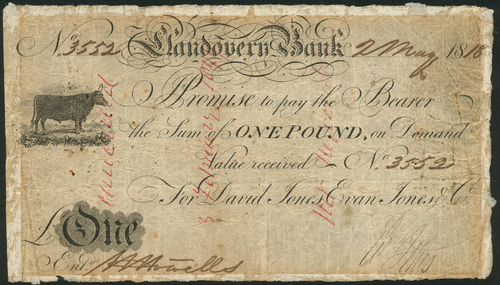 No. 3552 Llandovery Bank 2 May 1818
I Promise to pay the Bearer
the Sum of ONE POUND, on Demand
Value received No. 3552
For David Jones, Evan Jones, & Co.
£ One
Entd.